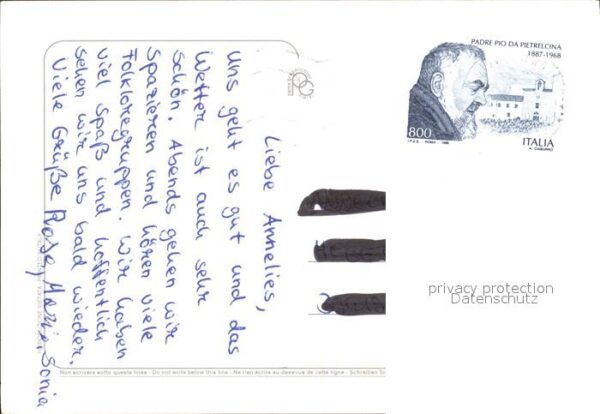 Liebe Annelies,
uns geht es gut und das
Wetter ist auch sehr
schön. Abends gehen wir
spazieren und hören viele
Folkloregruppen. Wir haben
viel Spaß und hoffentlich
sehen wir uns bald wieder.
Viele Grüße Rosa, Maria, Sonia
PADRE PIO DA PIETRELCINA
1887-1968
800
ITALIA
I.P.Z.S. - ROMA - 1998
privacy protection
Datenschutz
Non scrivere sotto questa linea - Do not write below this line - Ne rien écrire au-dessous de cette ligne - Schreiben Sie